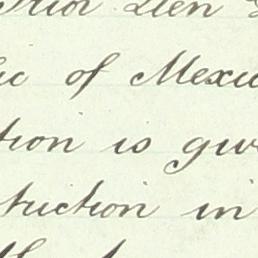 Prior Lien
ic of Mexic
tion is give
truction in